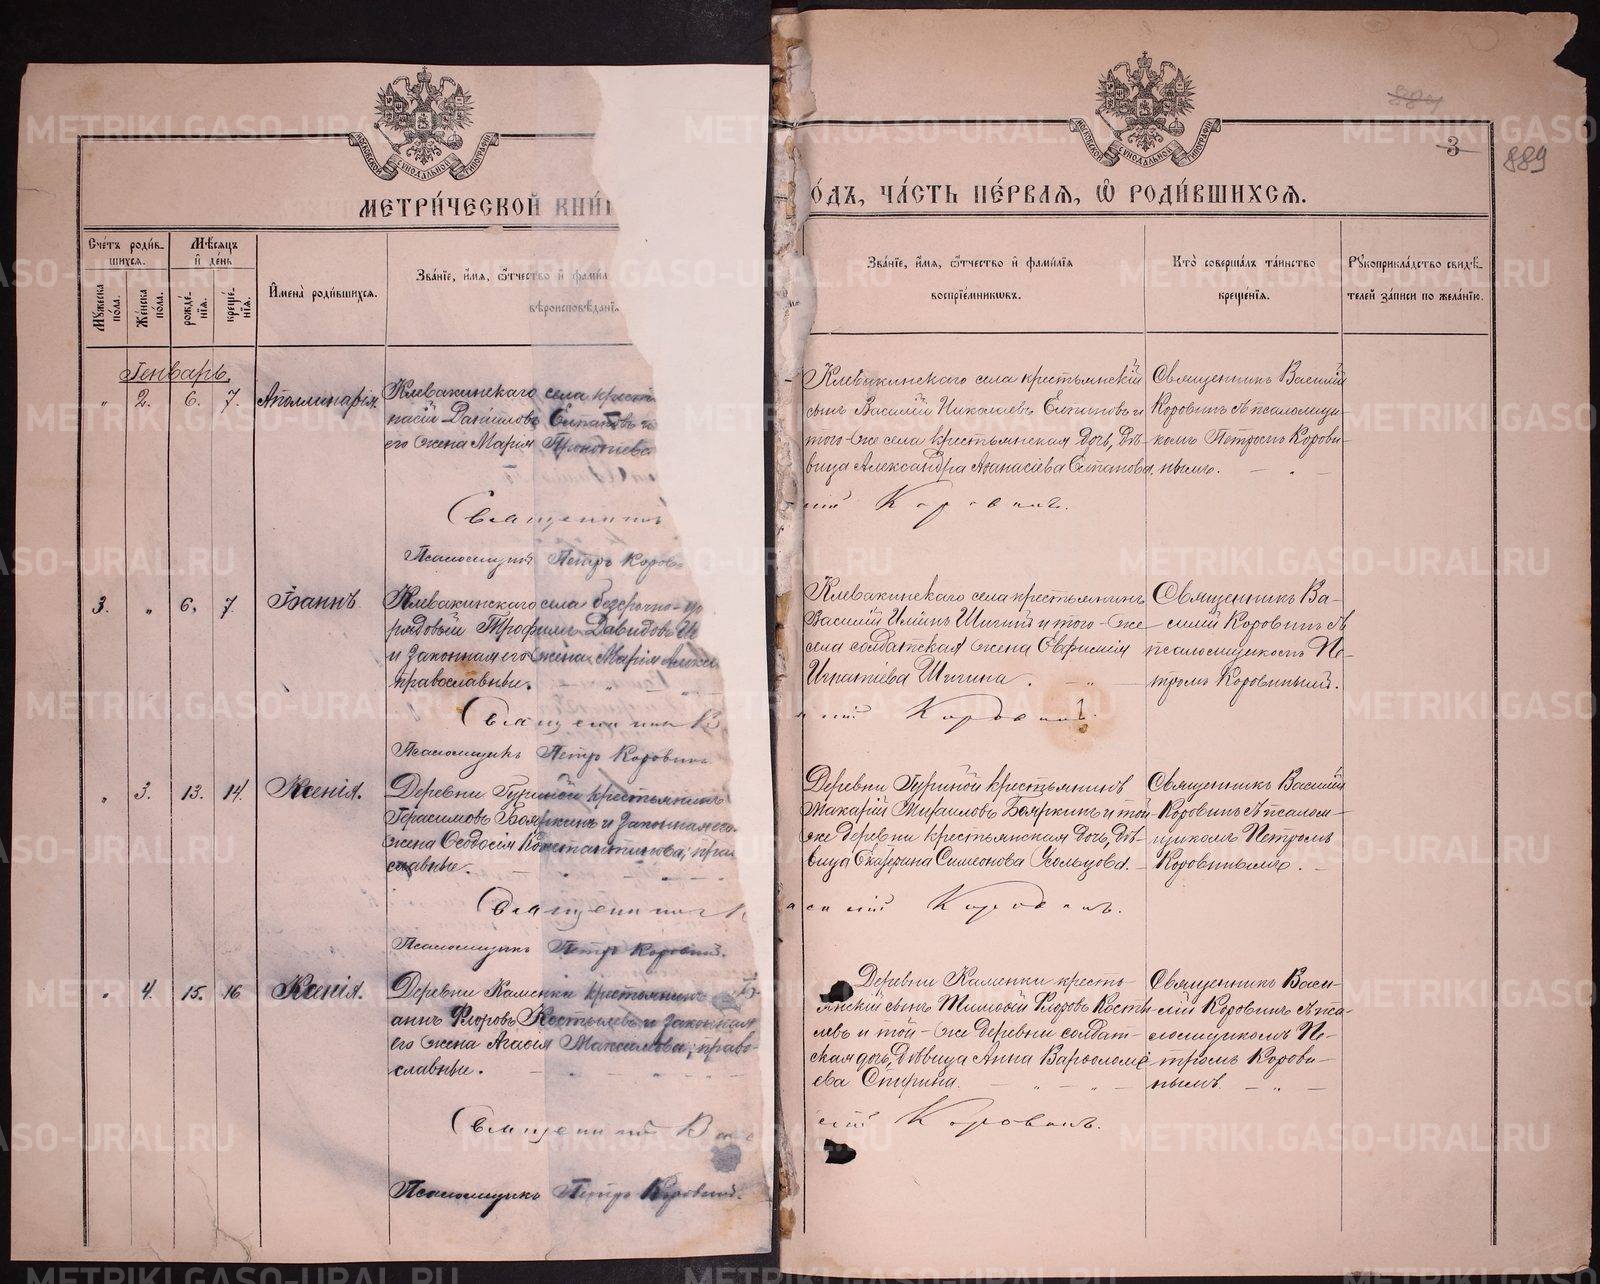 МОСКОВСКОЙ СѴНОДАЛЬНОЙ ТИПОГРАФІИ
МЕТРИ́ЧЕСКОЙ КНИ́
Сче́тъ роди́в-
шихся.
Мꙋ́жеска по́ла.
Же́нска по́ла.
Мѣ́сяцъ и҆ де́нь
рожде́-
нїя.
креще́-
нїя.
И҆мена̀ роди́вшихся.
Зва́нїе, и҆́мя, ѻ҆́тчество и҆ фами́л
вѣроисповѣ́данїѧ
Генварь
" 2. 6. 7. Аполлинарія.
Клевакинскаго села крестья
насій Даніиловъ Ситановъ и
его жена Марія Прокопіева
Священникъ
Псаломщикъ Петръ Коров
3. " 6. 7. Іоаннъ.
Клевакинскаго села безсрочно-
рядовый Трофимъ Давидовъ
и законная его жена Марія Алекс
православные.
Священникъ В
Псаломщикъ Петръ Коровинъ
" 3. 13. 14. Ксенія.
Деревни Гуриной крестьянинъ
Герасимовъ Бояркинъ и законная его
жена Ѳеодосія Константинова; право
славные.
Священникъ
Псаломщикъ Петръ Коровинъ.
" 4. 15. 16 Ксенія.
Деревни Каменки крестьянинъ
Флоровъ Костылевъ и законная
его жена Агаѳія Максимова; право-
славные.
Священникъ Вас
Псаломщикъ Петръ Коровинъ.
МОСКОВСКОЙ СѴНОДАЛЬНОЙ ТИПОГРАФІИ
3
889
ОДЪ, ЧА́СТЬ ПЕ́РВАЯ, Ѽ РОДИ́ВШИХСЯ.
Зва́нїе, и҆́мя, ѻ҆́тчество и҆ фами́лїя
воспрїе́мниковъ.
Кто̀ соверша́лъ та́инство
креще́нїя.
Рꙋкоприкла́дство свидѣ́-
телей за́писи по жела́нїю.
Клевакинскаго села крестьянскій
сынъ Василій Николаевъ Ситановъ и
того-же села крестьянская дочь, дѣ-
вица Александра Аѳанасіева Ситанова
Священникъ Василій
Коровинъ съ псаломщи-
комъ Петромъ Корови-
нымъ.
сій Коровинъ.
Клевакинскаго села крестьянинъ
Василій Ильинъ Шигинъ и того-же
села солдатская жена Евфимія
Игнатіева Шигина.
Священникъ Ва-
силій Коровинъ съ
псаломщикомъ Пе-
тромъ Коровинымъ.
силій Коровинъ.
Деревни Гуриной крестьянинъ
Макарій Михаиловъ Бояркинъ и той-
же деревни крестьянская дочь, дѣ-
вица Екатерина Симеонова Кольцова.
Священникъ Василій
Коровинъ съ псалом-
щикомъ Петромъ
Коровинымъ.
асилій Коровинъ.
Деревни Каменки кресть-
янскій сынъ Тимоѳей Флоровъ Косты-
левъ и той-же деревни солдат-
ская дочь, дѣвица Анна Варѳоломе-
ева Спирина.
Священникъ Васи-
лій Коровинъ съ пса-
ломщикомъ Пе-
тромъ Корови-
нымъ.
сій Коровинъ.
METRIKI.GASO-URAL.RU